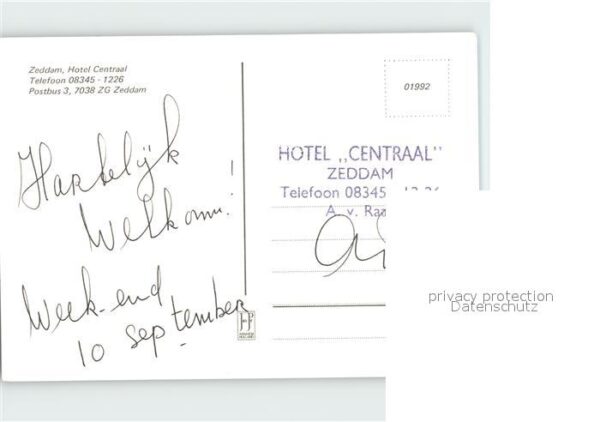 Zeddam, Hotel Centraal
Telefoon 08345 - 1226
Postbus 3, 7038 ZG Zeddam
Hartelijk
Welkom!
Week-end
10 september
01992
HOTEL „CENTRAAL"
ZEDDAM
Telefoon 08345
A. v.
privacy protection
Datenschutz